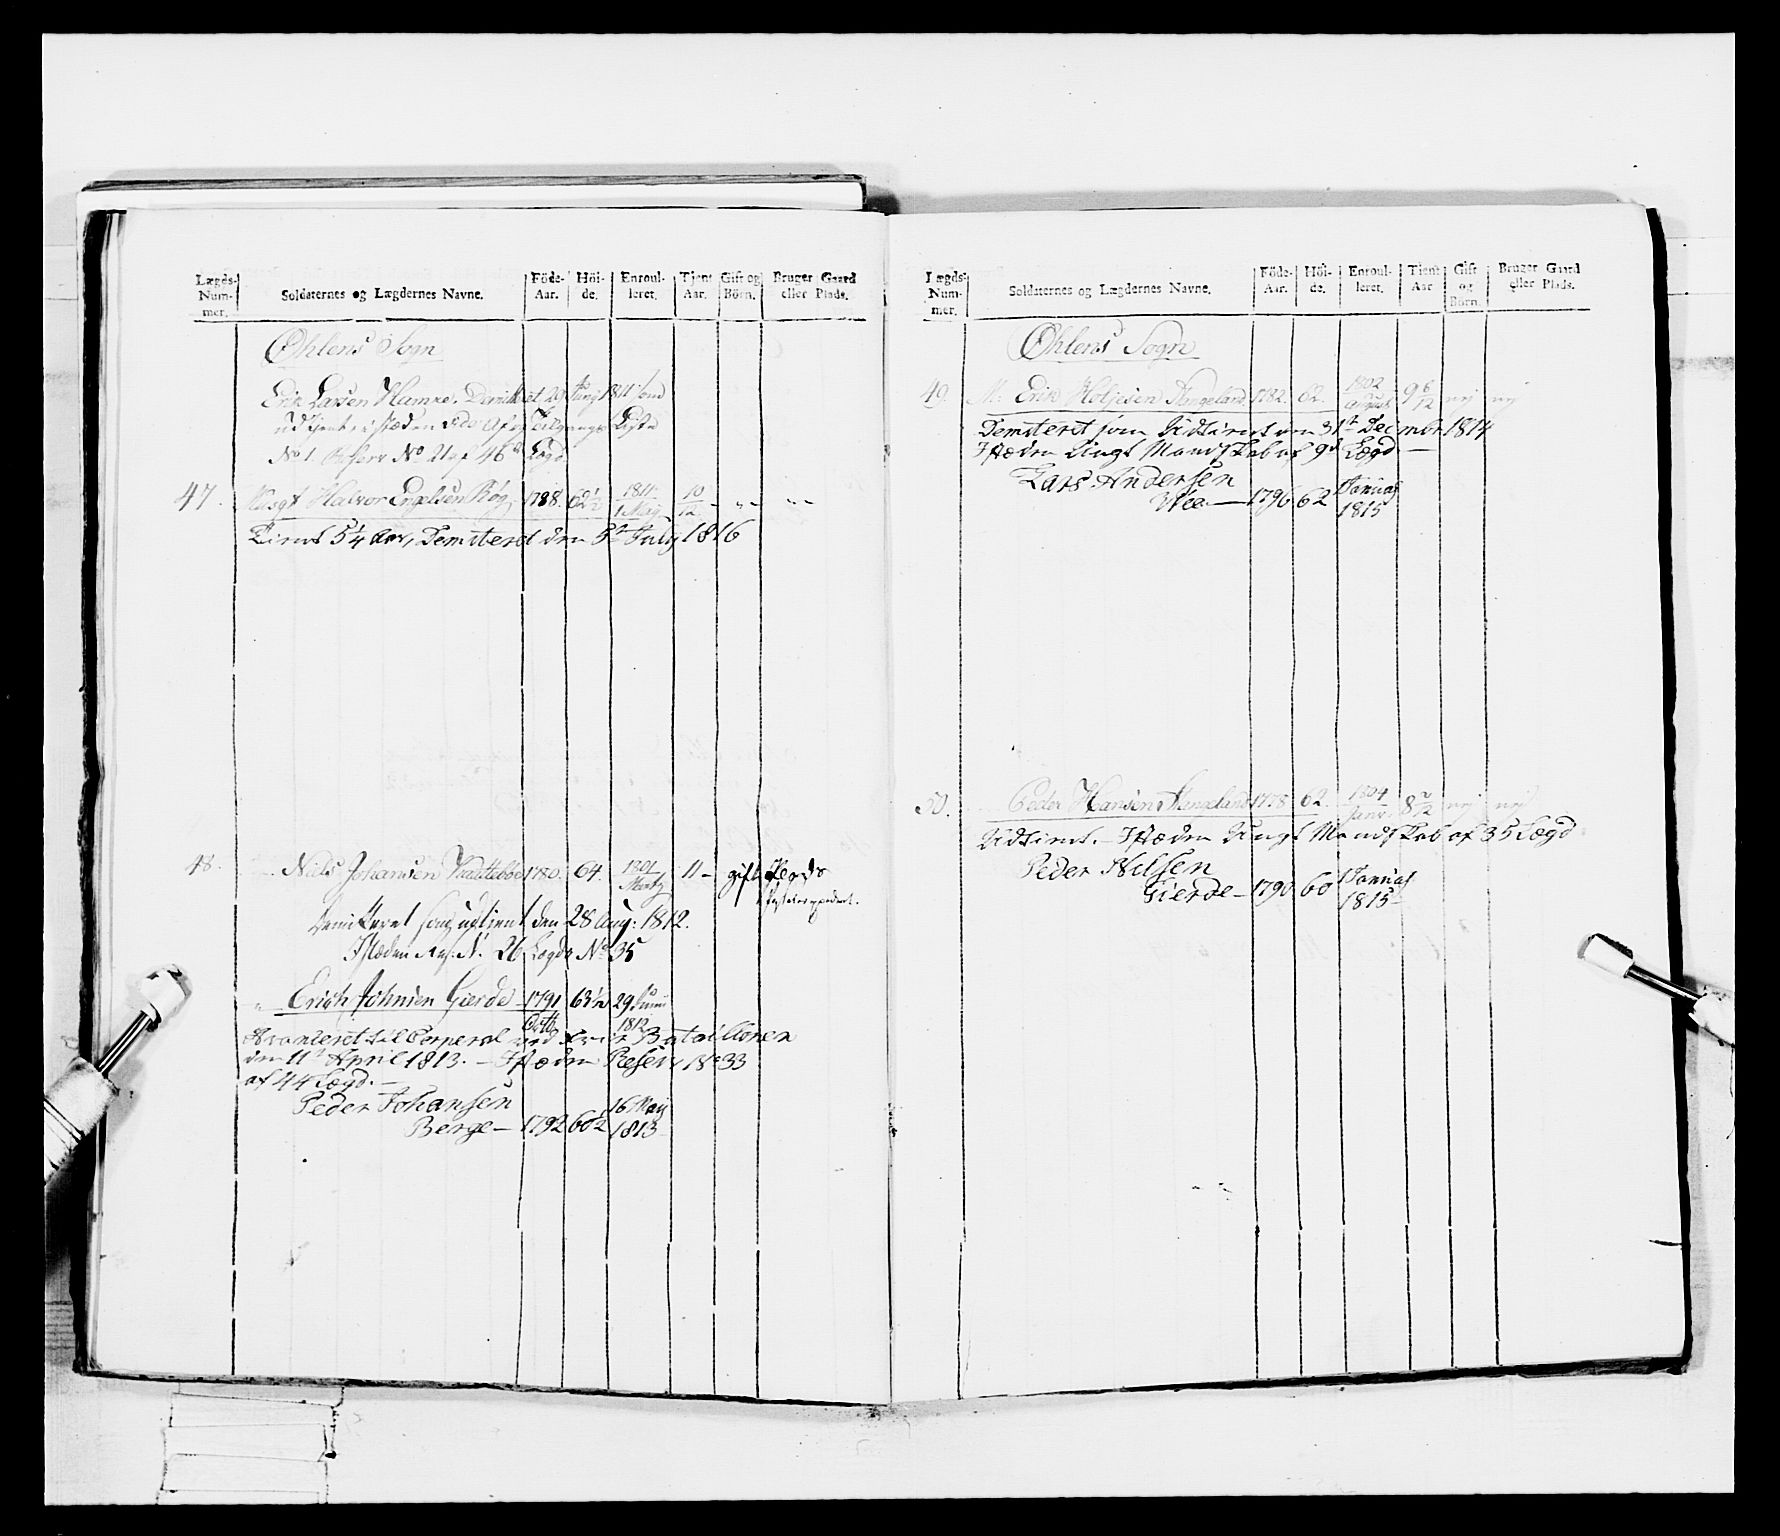 Lægds-Num-mer. Soldaternes og Lægdernes Navne. Föde-Aar. Höi-de. Enroul-leret. Tjent Aar. Gift og Börn. Bruger Gaard eller Plads.
Øhlens Sogn
Erik Larsen Hamre. Demitteret 29 Junj 1811 som
udtjent, i stæden
No 1. Reserv No 21 af 46 Lægd
47. Musqt Halvor Engelsen Røg 1788. 62½ 1811 1 Maij 10/12 - " "
Tient 5¼ Aar, Demiteret den 3 July 1816
48. Niels Johansen 1780. 64. 1801 Martz 11 – gift
Demitteret som udtient den 28 Aug: 1812.
Istæden Res: N. 26 Lægds No 35
" Erich Johnsen Gierde 1791 63½ 29 Junii 1812
Avanceret til Corporal ved Batallionen
den 11 April 1813. – Istæden Reserv No 33
af 44 Lægd. –
Peder Johansen
Berge – 1792 60½ 16 Maij 1813
Lægds-Num-mer. Soldaternes og Lægdernes Navne. Föde-Aar. Höi-de. Enroul-leret. Tjent Aar Gift og Börn. Bruger Gaard eller Plads.
Øhlens Sogn
49. M: Erik Holjesen Hangeland 1782. 62. 1802 August 9 6/12 nej nej
Demiteret som Udtient den 31 Decembr 1814
Istæden Ungt Mandskab af 9d Lægd –
Lars Andersen
Wea – 1796 62 1 Januar 1815
50. Peder Hansen Hangeland 1778 62. 1804 Janv. 8 2/12 nej nej
Udtient. – Istæden Ungt Mandskab af 35 Lægd
Peder Nilsen
Gierde – 1790 60 1 Januar 1815